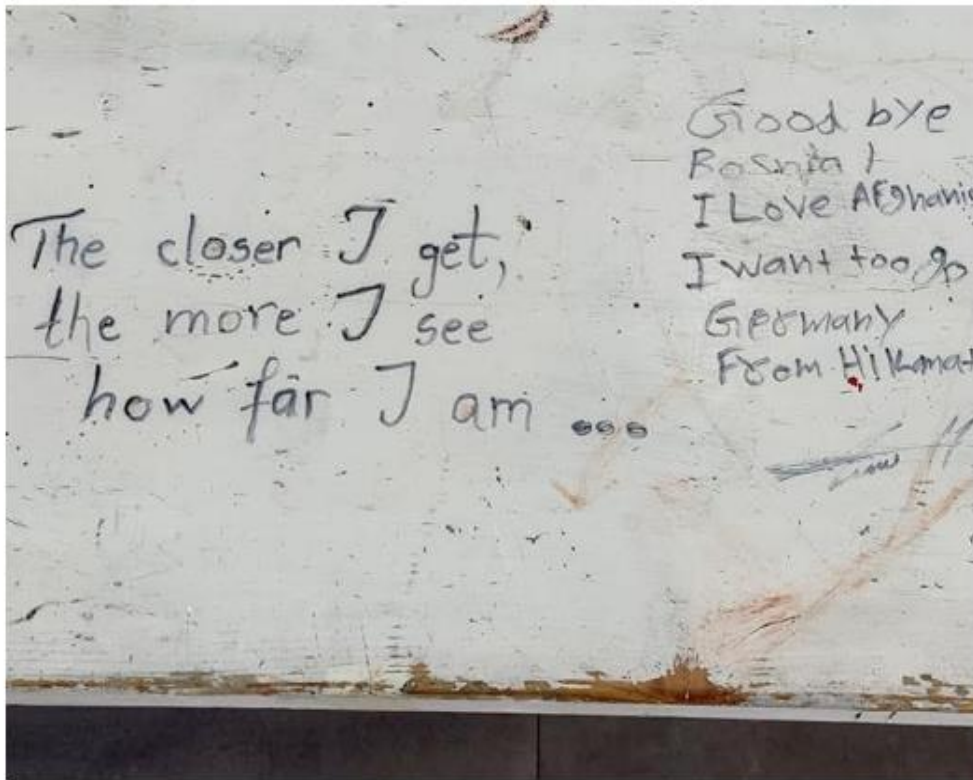 The closer I get,
the more I see
how far I am ...
Good bye
Bosnia !
I Love Afghanis
I want too go
Germany
From Hikmat